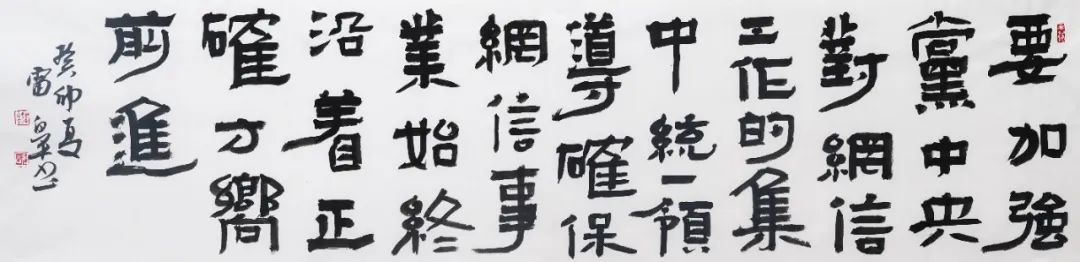 要加強
黨中央
對網信
工作的集
中統一領
導確保
網信事
業始終
沿着正
確方嚮
前進
癸卯夏
雷